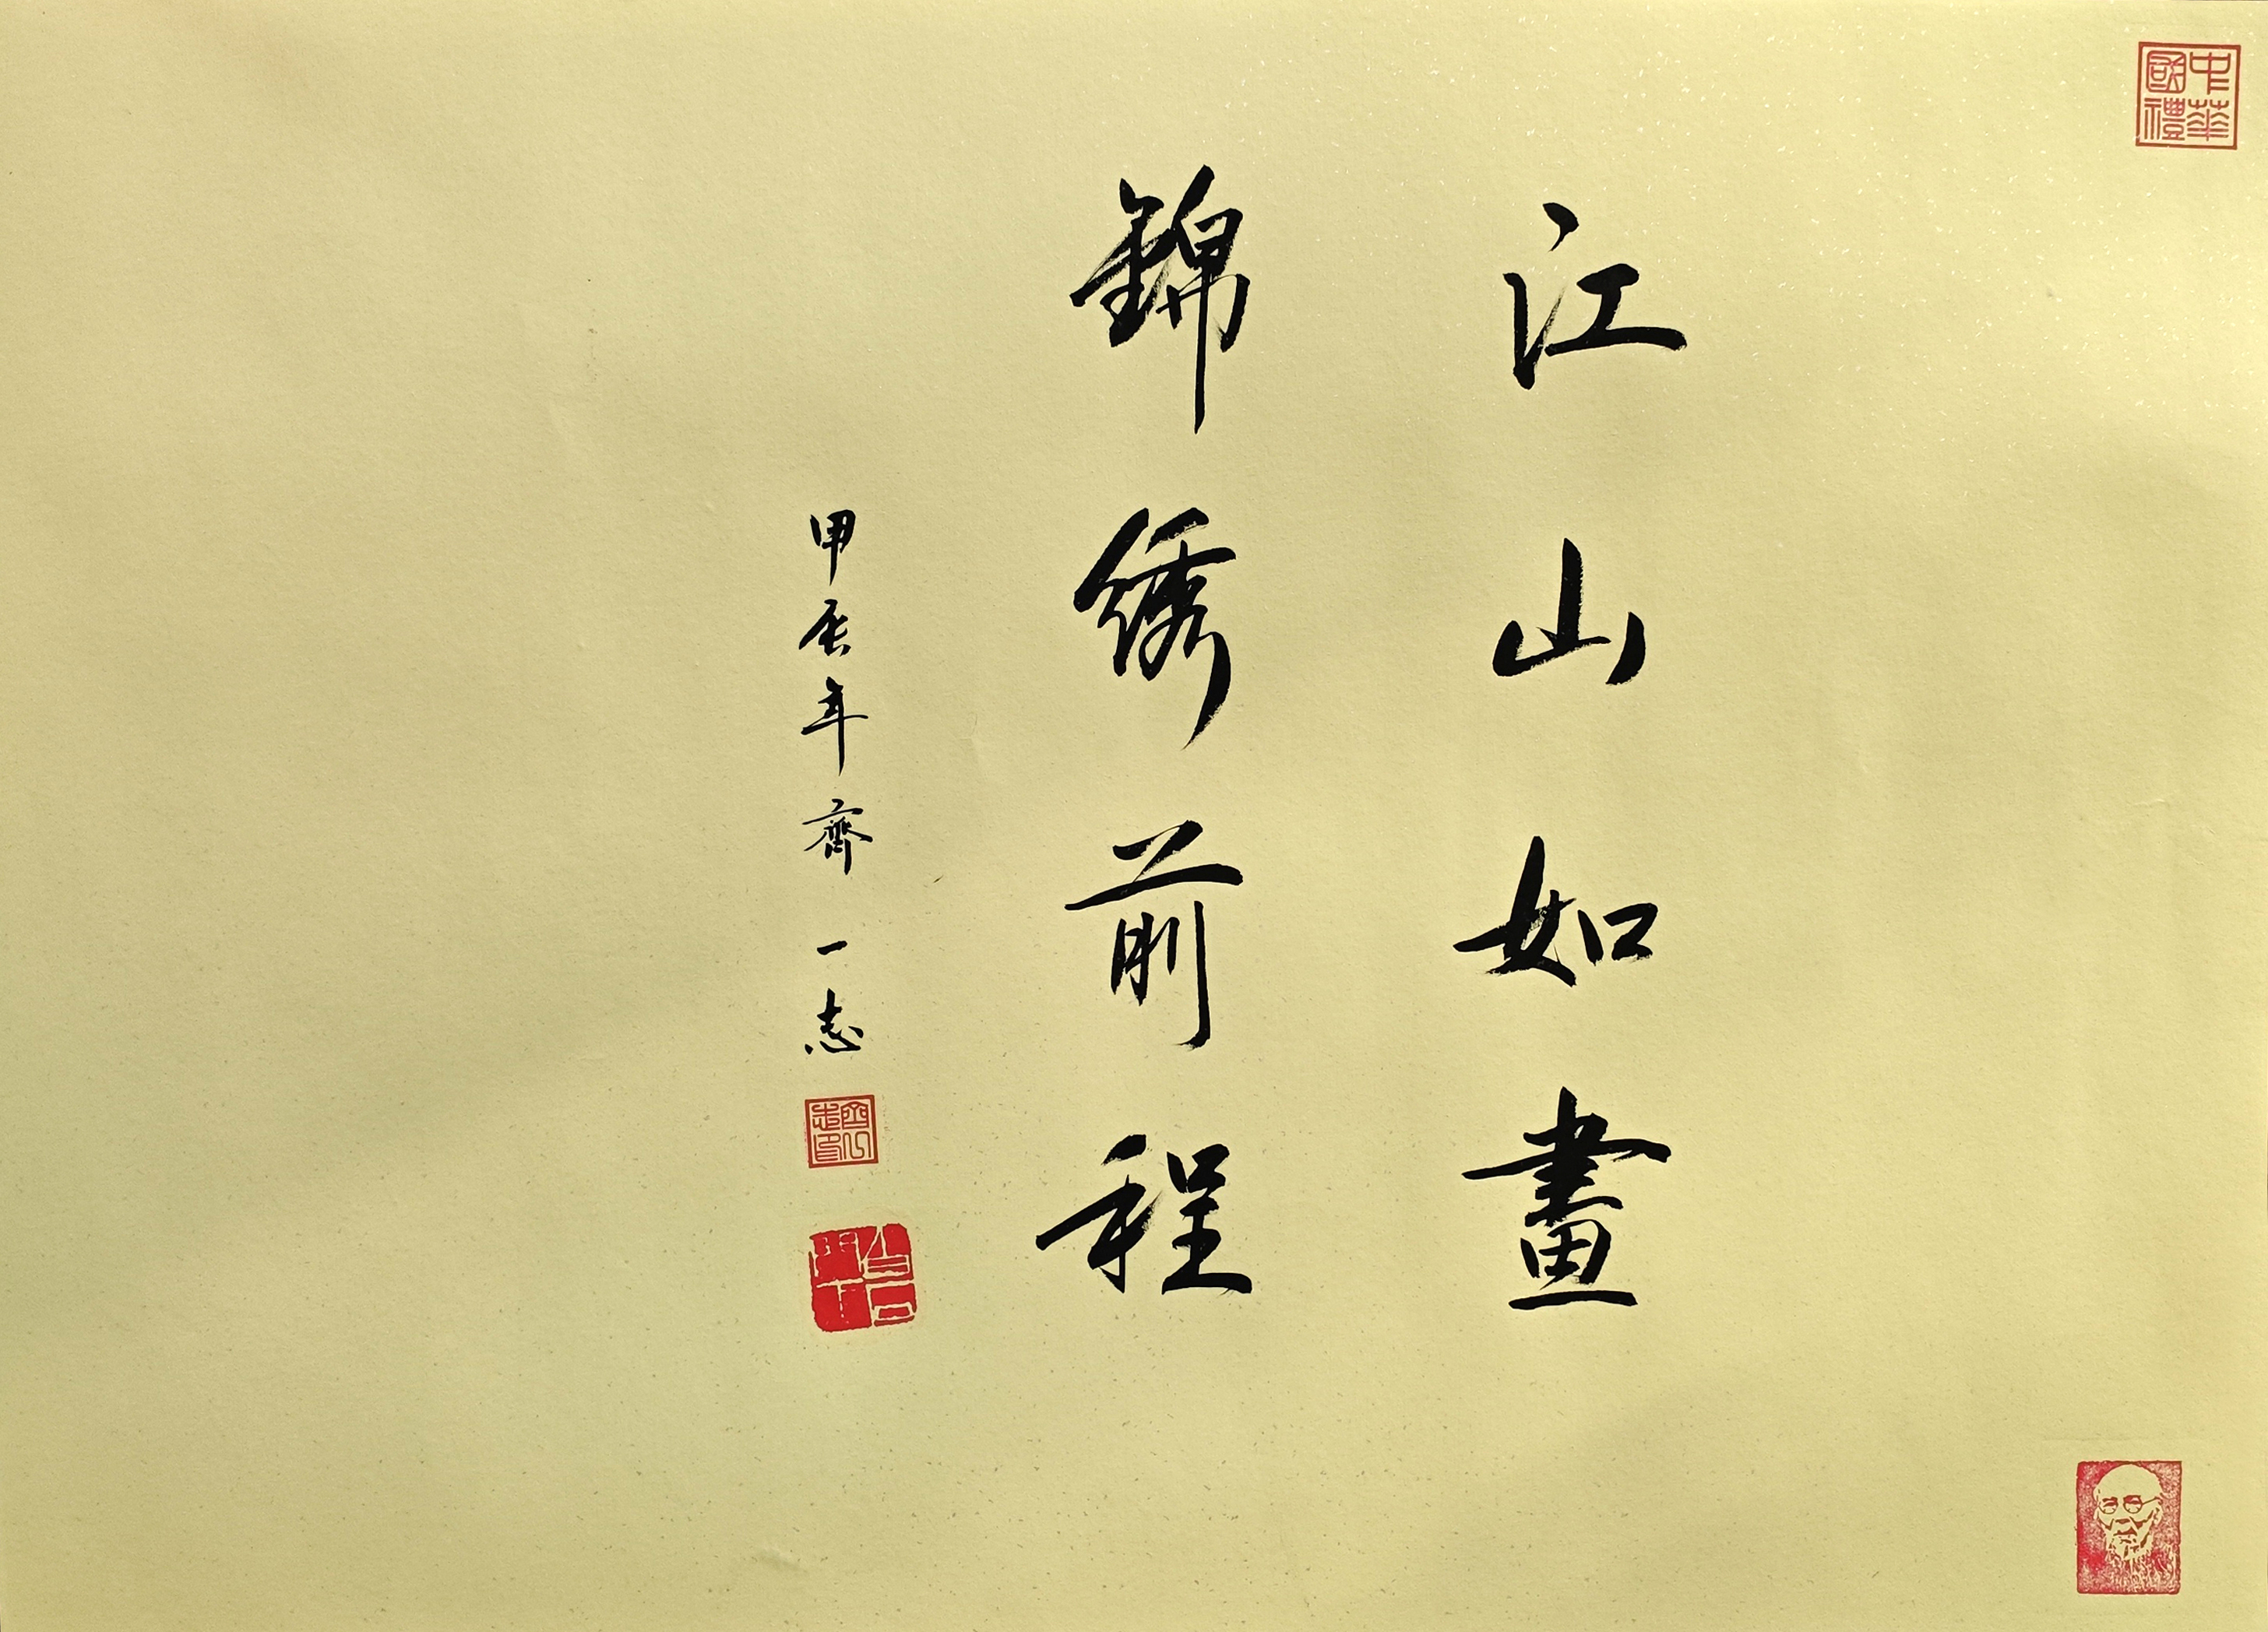 中華國禮
江山如畫
錦绣前程
甲辰年齊一志